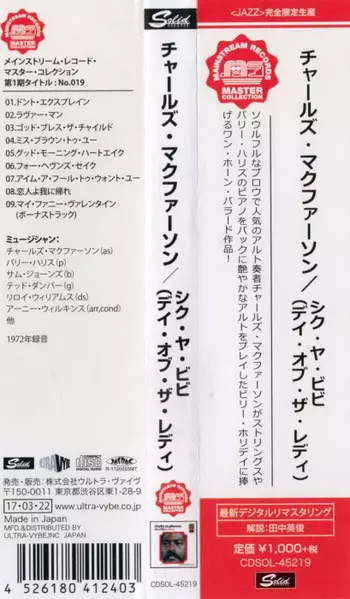 MAINSTREAM RECORDS
MASTER
COLLECTION
メインストリーム・レコード・
マスター・コレクション
第1期タイトル:No.019
01.ドント・エクスプレイン
02.ラヴァー・マン
03.ゴッド・ブレス・ザ・チャイルド
04.ミス・ブラウン・トゥ・ユー
05.グッド・モーニング・ハートエイク
06.フォー・ヘヴンズ・セイク
07.アイム・ア・フール・トゥ・ウォント・ユー
08.恋人よ我に帰れ
09.マイ・ファニー・ヴァレンタイン
(ボーナストラック)
ミュージシャン:
チャールズ・マクファーソン(as)
バリー・ハリス(p)
サム・ジョーンズ(b)
テッド・ダンバー(g)
リロイ・ウィリアムス(ds)
アーニー・ウィルキンス(arr,cond)
他
1972年録音
Solid
disc
JASRAC
発売・販売:株式会社ウルトラ・ヴァイヴ
〒150-0011 東京都渋谷区東1-28-9
17・03・22
www.ultra-vybe.co.jp
Made in Japan
MFD.&DISTRIBUTED BY
ULTRA-VYBE,INC JAPAN
4 526180 412403
Solid
RECORDS
チャールズ・マクファーソン/シク・ヤ・ビビ
(デイ・オブ・ザ・レディ)
MASTER
COLLECTION
CDSOL-45219
<JAZZ>完全限定生産
MAINSTREAM RECORDS
MASTER
COLLECTION
チャールズ・マクファーソン/シク・ヤ・ビビ
(デイ・オブ・ザ・レディ)
ソウルフルなブロウで人気のアルト奏者チャールズ・マクファーソンがストリングスや
バリー・ハリスのピアノをバックに艶やかなアルトをプレイしたビリー・ホリデイに捧
げるワン・ホーン・バラード作品!
最新デジタルリマスタリング
解説:田中英俊
定価 ¥1,000+税
CDSOL-45219
Solid
RECORDS